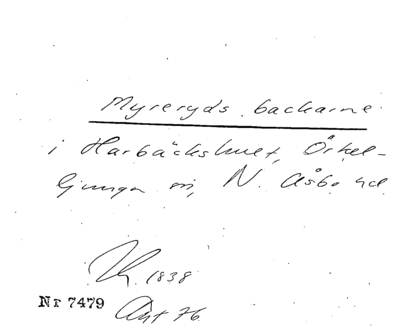 Myreryds backarne
i Harbäckshult, Örkel-
ljunga sn, N. Åsbo hd.
1838
Nr 7479
Ant 76.